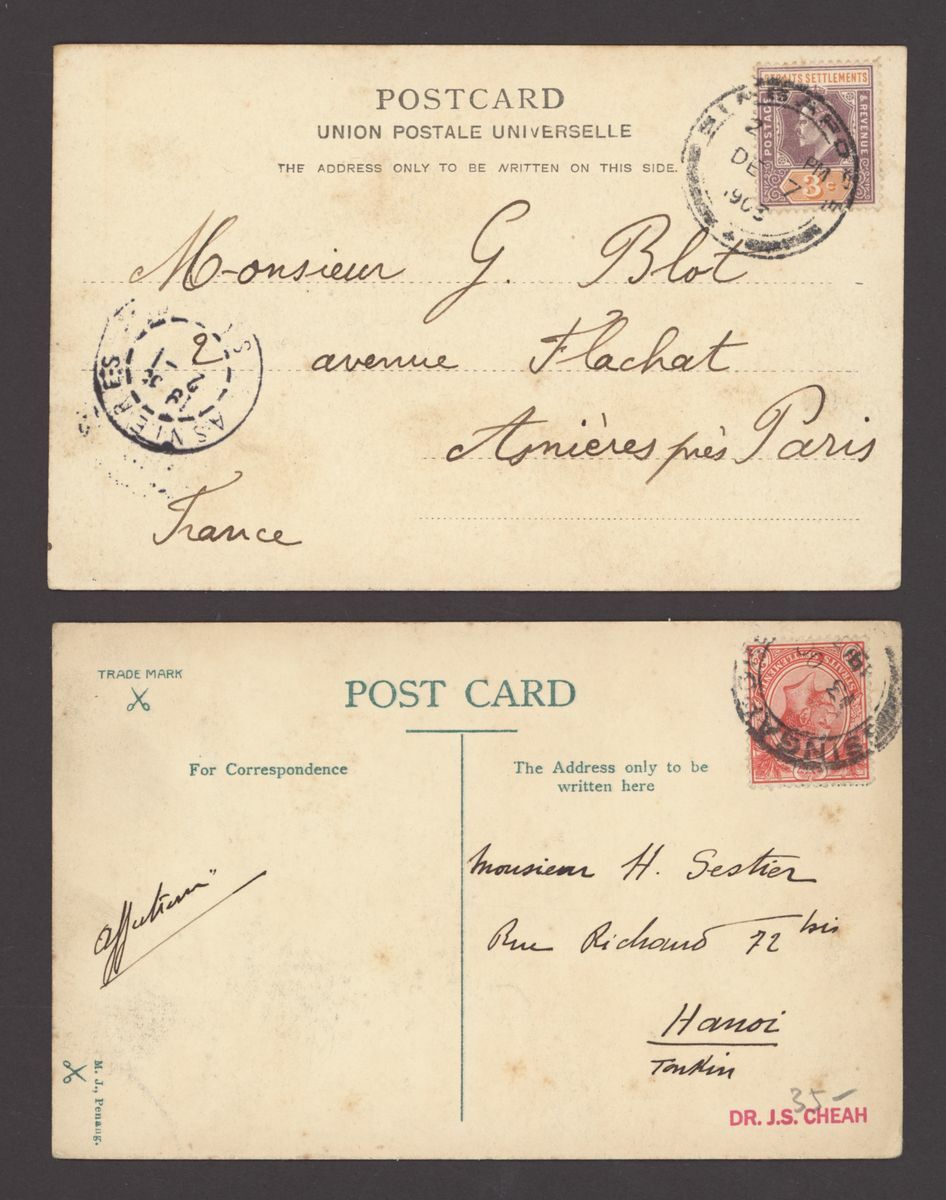 POSTCARD
UNION POSTALE UNIVERSELLE
THE ADDRESS ONLY TO BE WRITTEN ON THIS SIDE.
STRAITS SETTLEMENTS
POSTAGE & REVENUE
3c
SINGAPO
2 PM
DE 7
1903
Monsieur G. Blot
2 avenue Flachat
Asnières près Paris
France
ASNIERES
TRADE MARK
POST CARD
For Correspondence
The Address only to be
written here
SINGAP
Monsieur H. Sestier
Rue Richaud 72 bis
Hanoi
Tonkin
35-
DR. J.S. CHEAH
M. J., Penang.